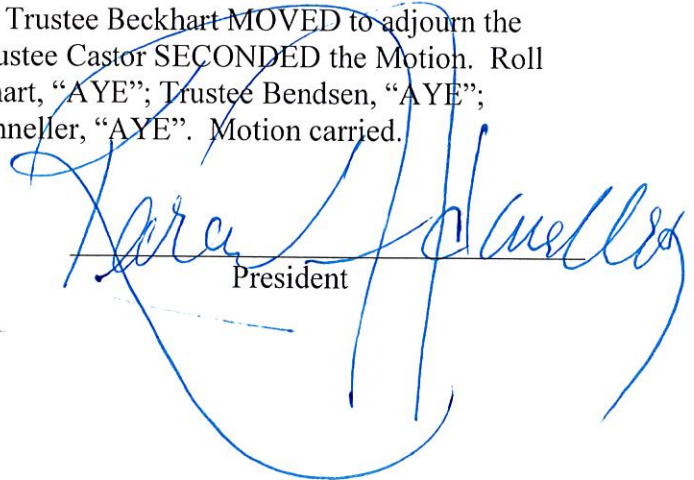 Trustee Beckhart MOVED to adjourn the
ustee Castor SECONDED the Motion. Roll
art, “AYE”; Trustee Bendsen, “AYE”;
nneller, “AYE”. Motion carried.
Kara
President